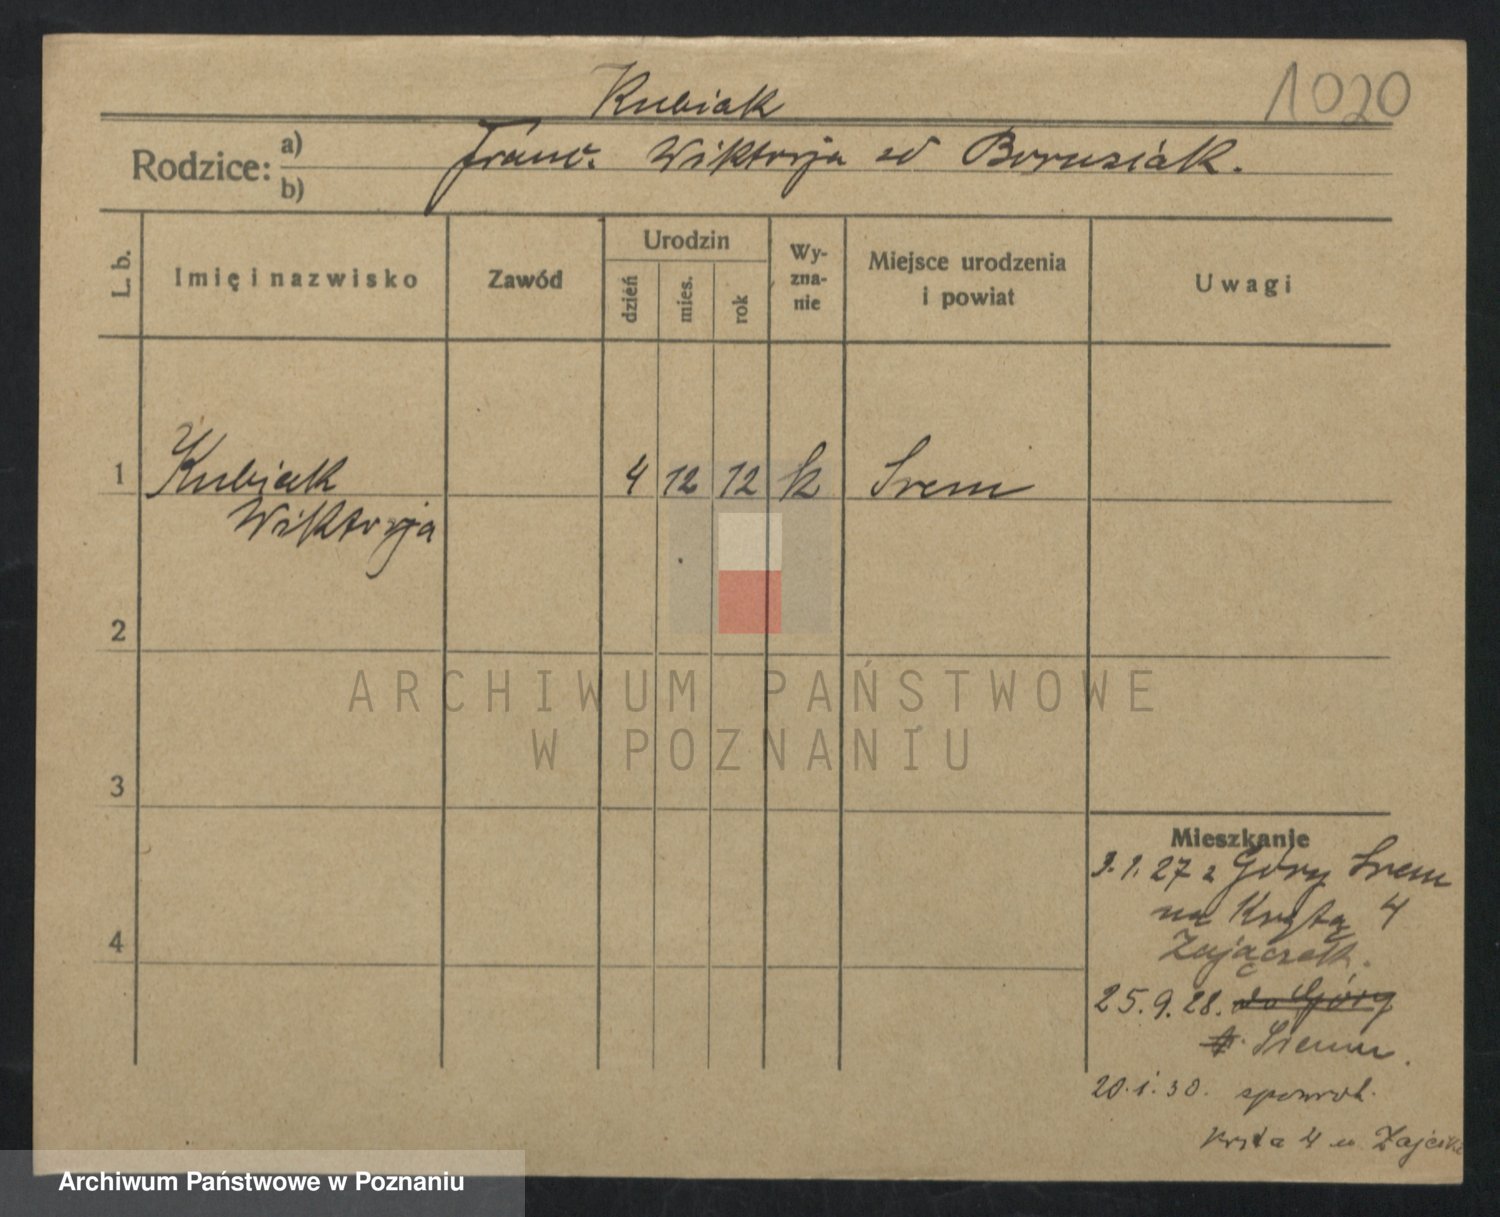 Kubiak
1020
Rodzice: a) Franc. Wiktorja zd Borusiak.
b)
L. b. Imię i nazwisko Zawód Urodzin dzień mies. rok Wyzna-nie Miejsce urodzenia i powiat Uwagi
1 Kubiak 4 12 12 k Srem
Wiktorja
2
ARCHIWUM PAŃSTWOWE
W POZNANIU
3
Mieszkanie
3.1.27 z Góry Srem
na Krętą 4
Zajączek.
4
25.9.28. do Góry
Sremu.
20.1.30. spowrot.
Kręta 4 u
Archiwum Państwowe w Poznaniu